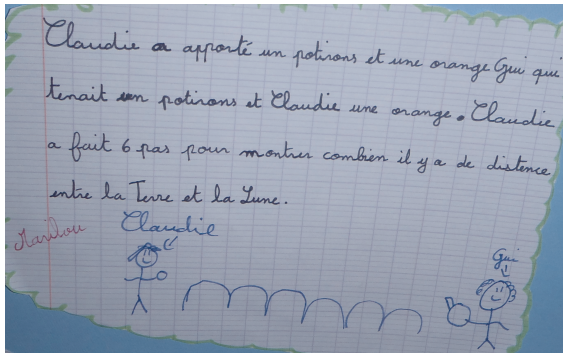 Claudie a apporté un potirons et une orange Gui qui
tenait un potirons et Claudie une orange. Claudie
a fait 6 pas pour montrer combien il y a de distence
entre la Terre et la Lune.
Marilou
Claudie
Gui